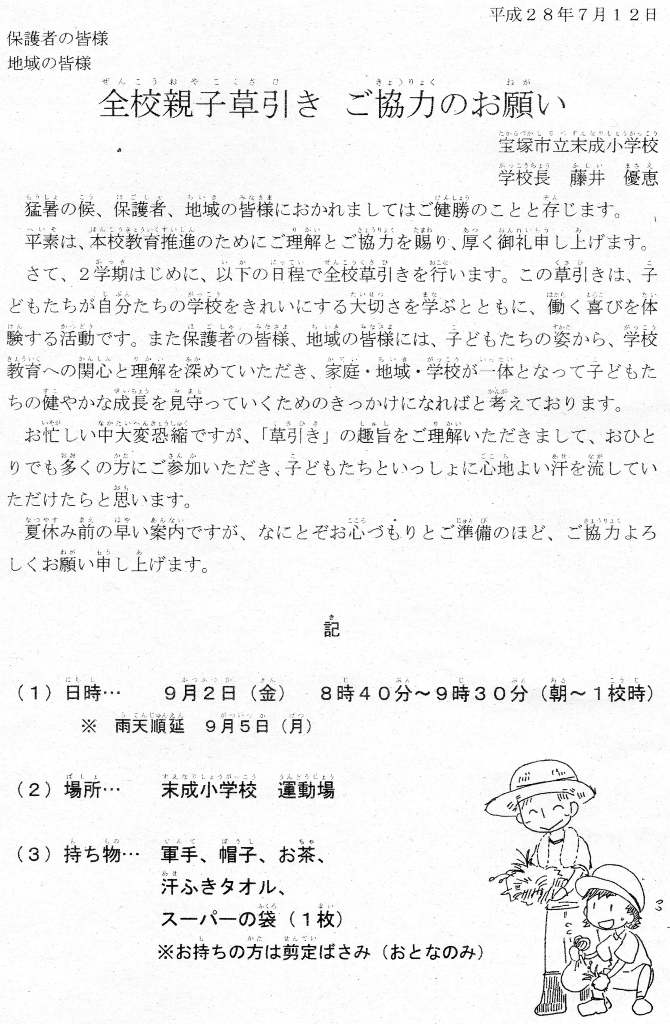 平成２８年７月１２日
保護者の皆様
地域の皆様
全校親子草引き ご協力のお願い
宝塚市立末成小学校
学校長　藤井　優恵
猛暑の候、保護者、地域の皆様におかれましてはご健勝のことと存じます。
平素は、本校教育推進のためにご理解とご協力を賜り、厚く御礼申し上げます。
さて、２学期はじめに、以下の日程で全校草引きを行います。この草引きは、子
どもたちが自分たちの学校をきれいにする大切さを学ぶとともに、働く喜びを体
験する活動です。また保護者の皆様、地域の皆様には、子どもたちの姿から、学校
教育への関心と理解を深めていただき、家庭・地域・学校が一体となって子どもた
ちの健やかな成長を見守っていくためのきっかけになればと考えております。
お忙しい中大変恐縮ですが、「草引き」の趣旨をご理解いただきまして、おひと
りでも多くの方にご参加いただき、子どもたちといっしょに心地よい汗を流してい
ただけたらと思います。
夏休み前の早い案内ですが、なにとぞお心づもりとご準備のほど、ご協力よろ
しくお願い申し上げます。
記
（１）日時…　９月２日（金）　８時４０分～９時３０分（朝～１校時）
※　雨天順延　９月５日（月）
（２）場所…　末成小学校　運動場
（３）持ち物…　軍手、帽子、お茶、
汗ふきタオル、
スーパーの袋（１枚）
※お持ちの方は剪定ばさみ（おとなのみ）